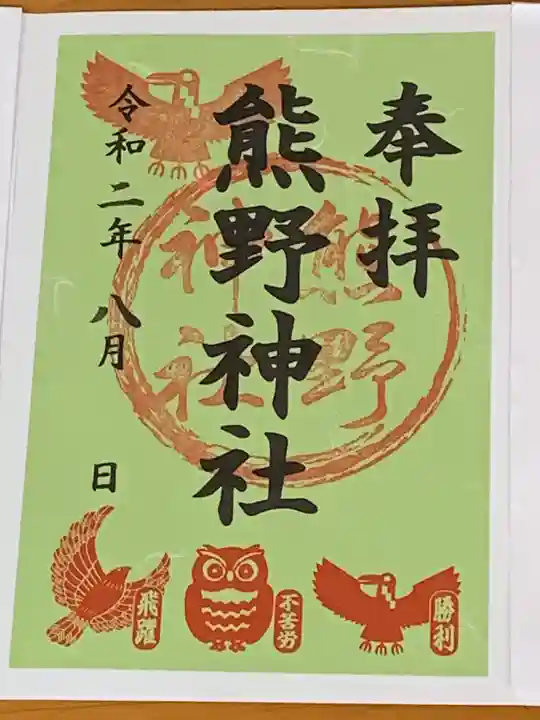 奉拝
熊野神社
熊野
神社
令和二年八月 日
飛躍
不苦労
勝利